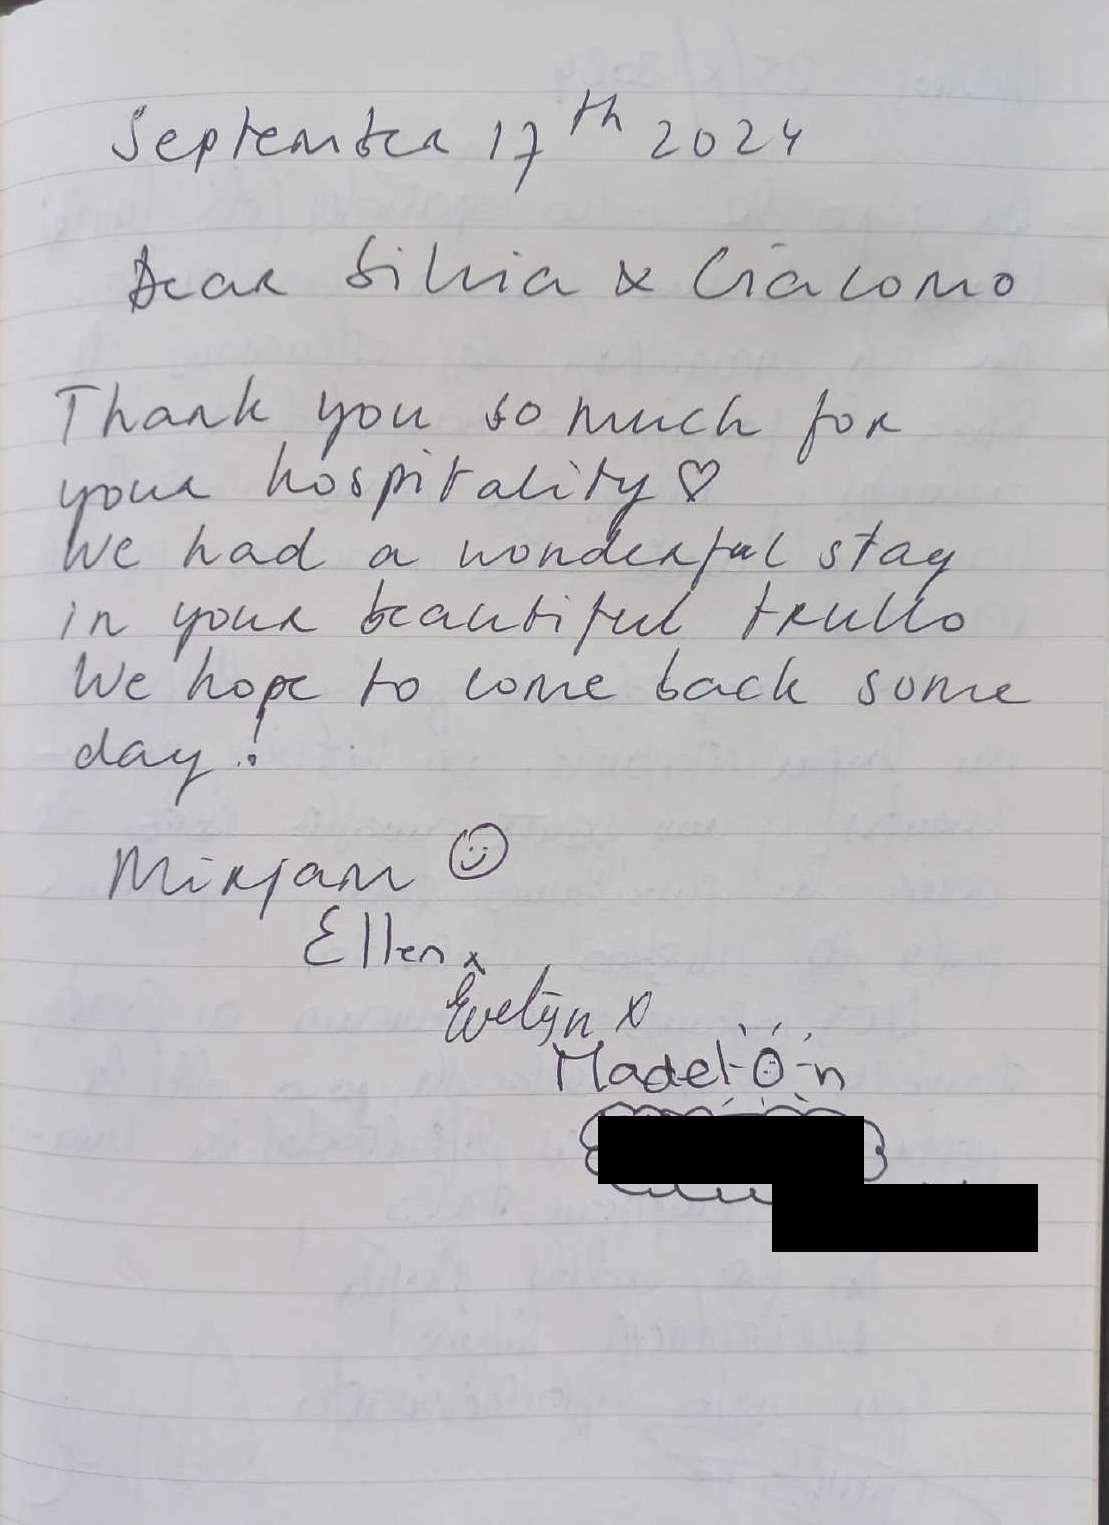 September 17th 2024
Dear Silvia & Giacomo
Thank you so much for
your hospitality ♡
We had a wonderful stay
in your beautiful trullo
We hope to come back some
day!
Mirjam ☺
Ellen x
Evelijn x
Madelon